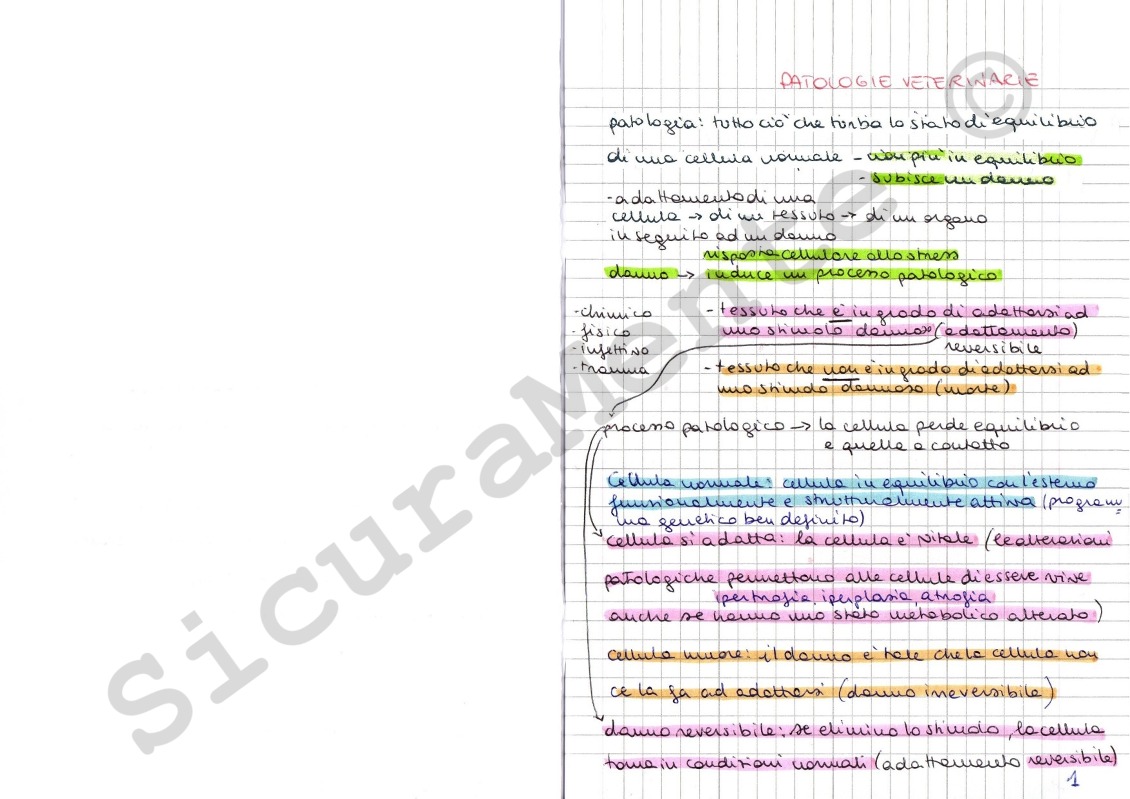 PATOLOGIE VETERINARIE
patologia: tutto ciò che turba lo stato di equilibrio
di una cellula normale - non più in equilibrio
- subisce un danno
- adattamento di una
cellula → di un tessuto → di un organo
in seguito ad un danno
risposta cellulare allo stress
danno → induce un processo patologico
- chimico
- fisico
- infettivo
- trauma
- tessuto che è in grado di adattarsi ad
uno stimolo dannoso (adattamento)
reversibile
- tessuto che non è in grado di adattarsi ad
uno stimolo dannoso (morte)
processo patologico → la cellula perde equilibrio
e quelle a contatto
cellula normale: cellula in equilibrio con l'esterno
funzionalmente e strutturalmente attiva (program=
ma genetico ben definito)
cellula si adatta: la cellula è vitale (le alterazioni
patologiche permettono alle cellule di essere vive
ipertrofia, iperplasia, atrofia
anche se hanno uno stato metabolico alterato)
cellula muore: il danno è tale che la cellula non
ce la fa ad adattarsi (danno irreversibile)
danno reversibile: se elimino lo stimolo, la cellula
torna in condizioni normali (adattamento reversibile)
1
SicuraMente ©